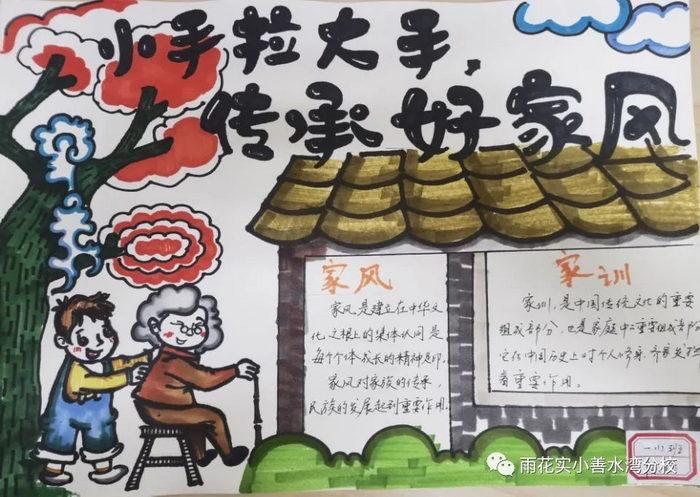 小手拉大手，
传承好家风
家风
家风是建立在中华文
化之根上的集体认同是
每个个体成长的精神足印。
家风对家族的传承，
民族的发展起到重要作用。
家训
家训，是中国传统文化的重要
组成部分，也是家庭中重要组成部分
它在中国历史上对个人的修身、齐家发
着重要作用。
雨花实小善水湾分校